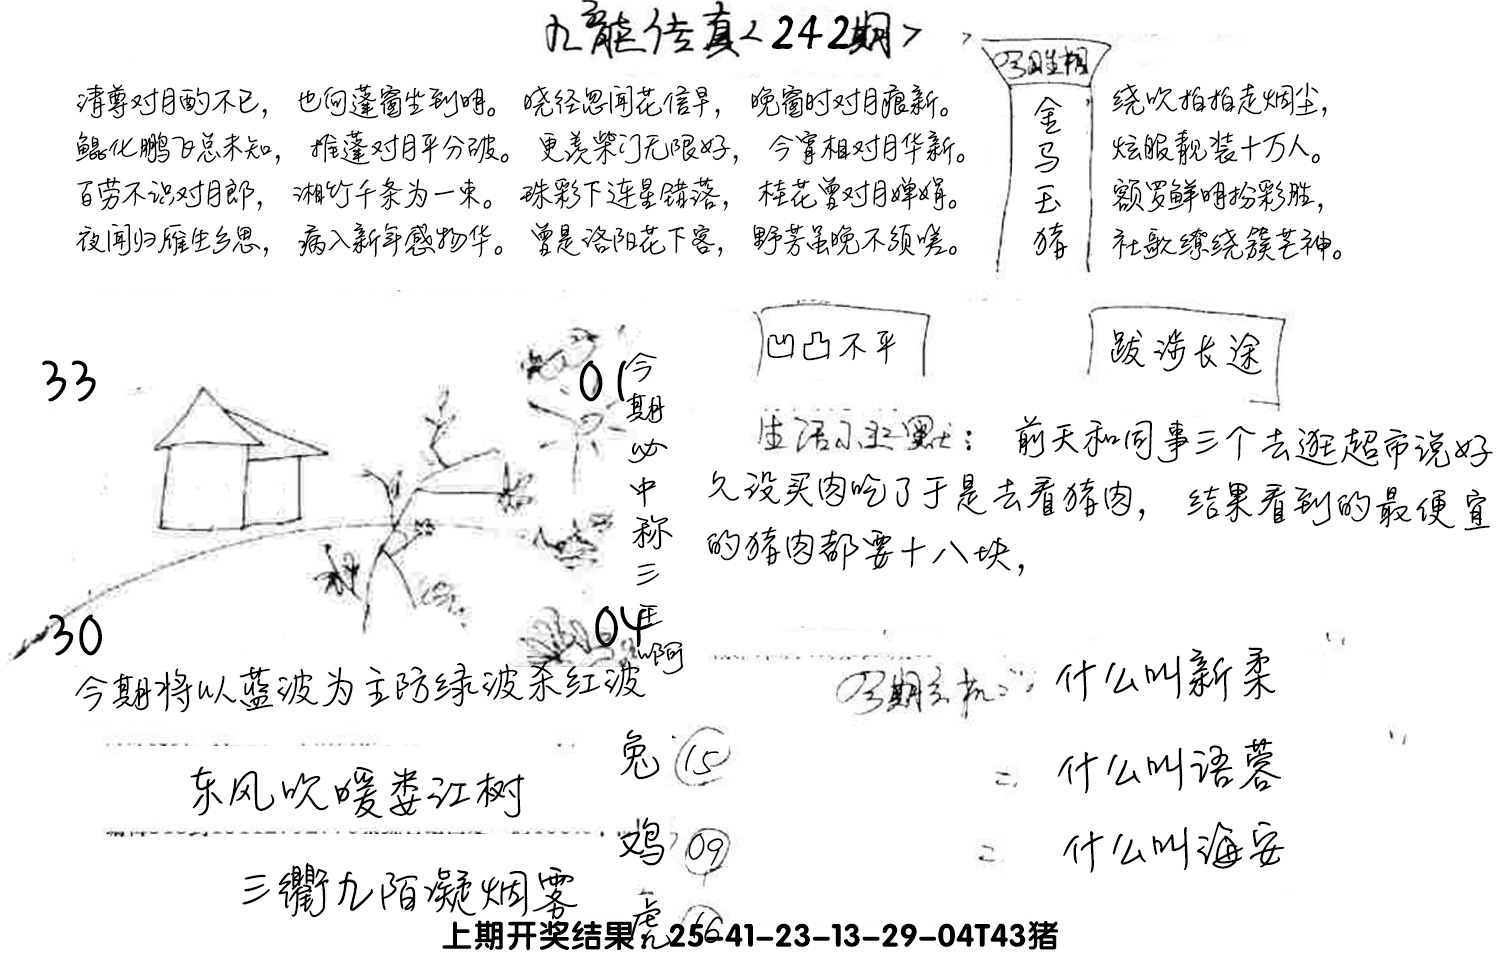 九龙传真<242期>
清尊对月酌不已，也向蓬窗坐到明。晓径忽闻花信早，晚窗时对月痕新。
鲲化鹏飞总未知，推蓬对月平分破。更羡柴门无限好，今宵相对月华新。
百劳不识对月郎，湘竹千条为一束。珠彩下连星错落，桂花曾对月婵娟。
夜闻归雁生乡思，病入新年感物华。曾是洛阳花下客，野芳虽晚不须嗟。
今日生相
金
马
玉
猪
绕吹拍拍走烟尘，
炫服靓装十万人。
额罗鲜明扮彩胜，
社歌缭绕簇芒神。
33
01
30
04
今期必中称三王啊
凹凸不平
跋涉长途
生活小幽默：前天和同事三个去逛超市说好
久没买肉吃了于是去看猪肉，结果看到的最便宜
的猪肉都要十八块，
今期将以蓝波为主防绿波杀红波
今期玄机：什么叫新柔
= 什么叫语蓉
= 什么叫海安
东风吹暖娄江树
三衢九陌凝烟雾
兔 15
鸡 09
虎 16
上期开奖结果：25-41-23-13-29-04T43猪